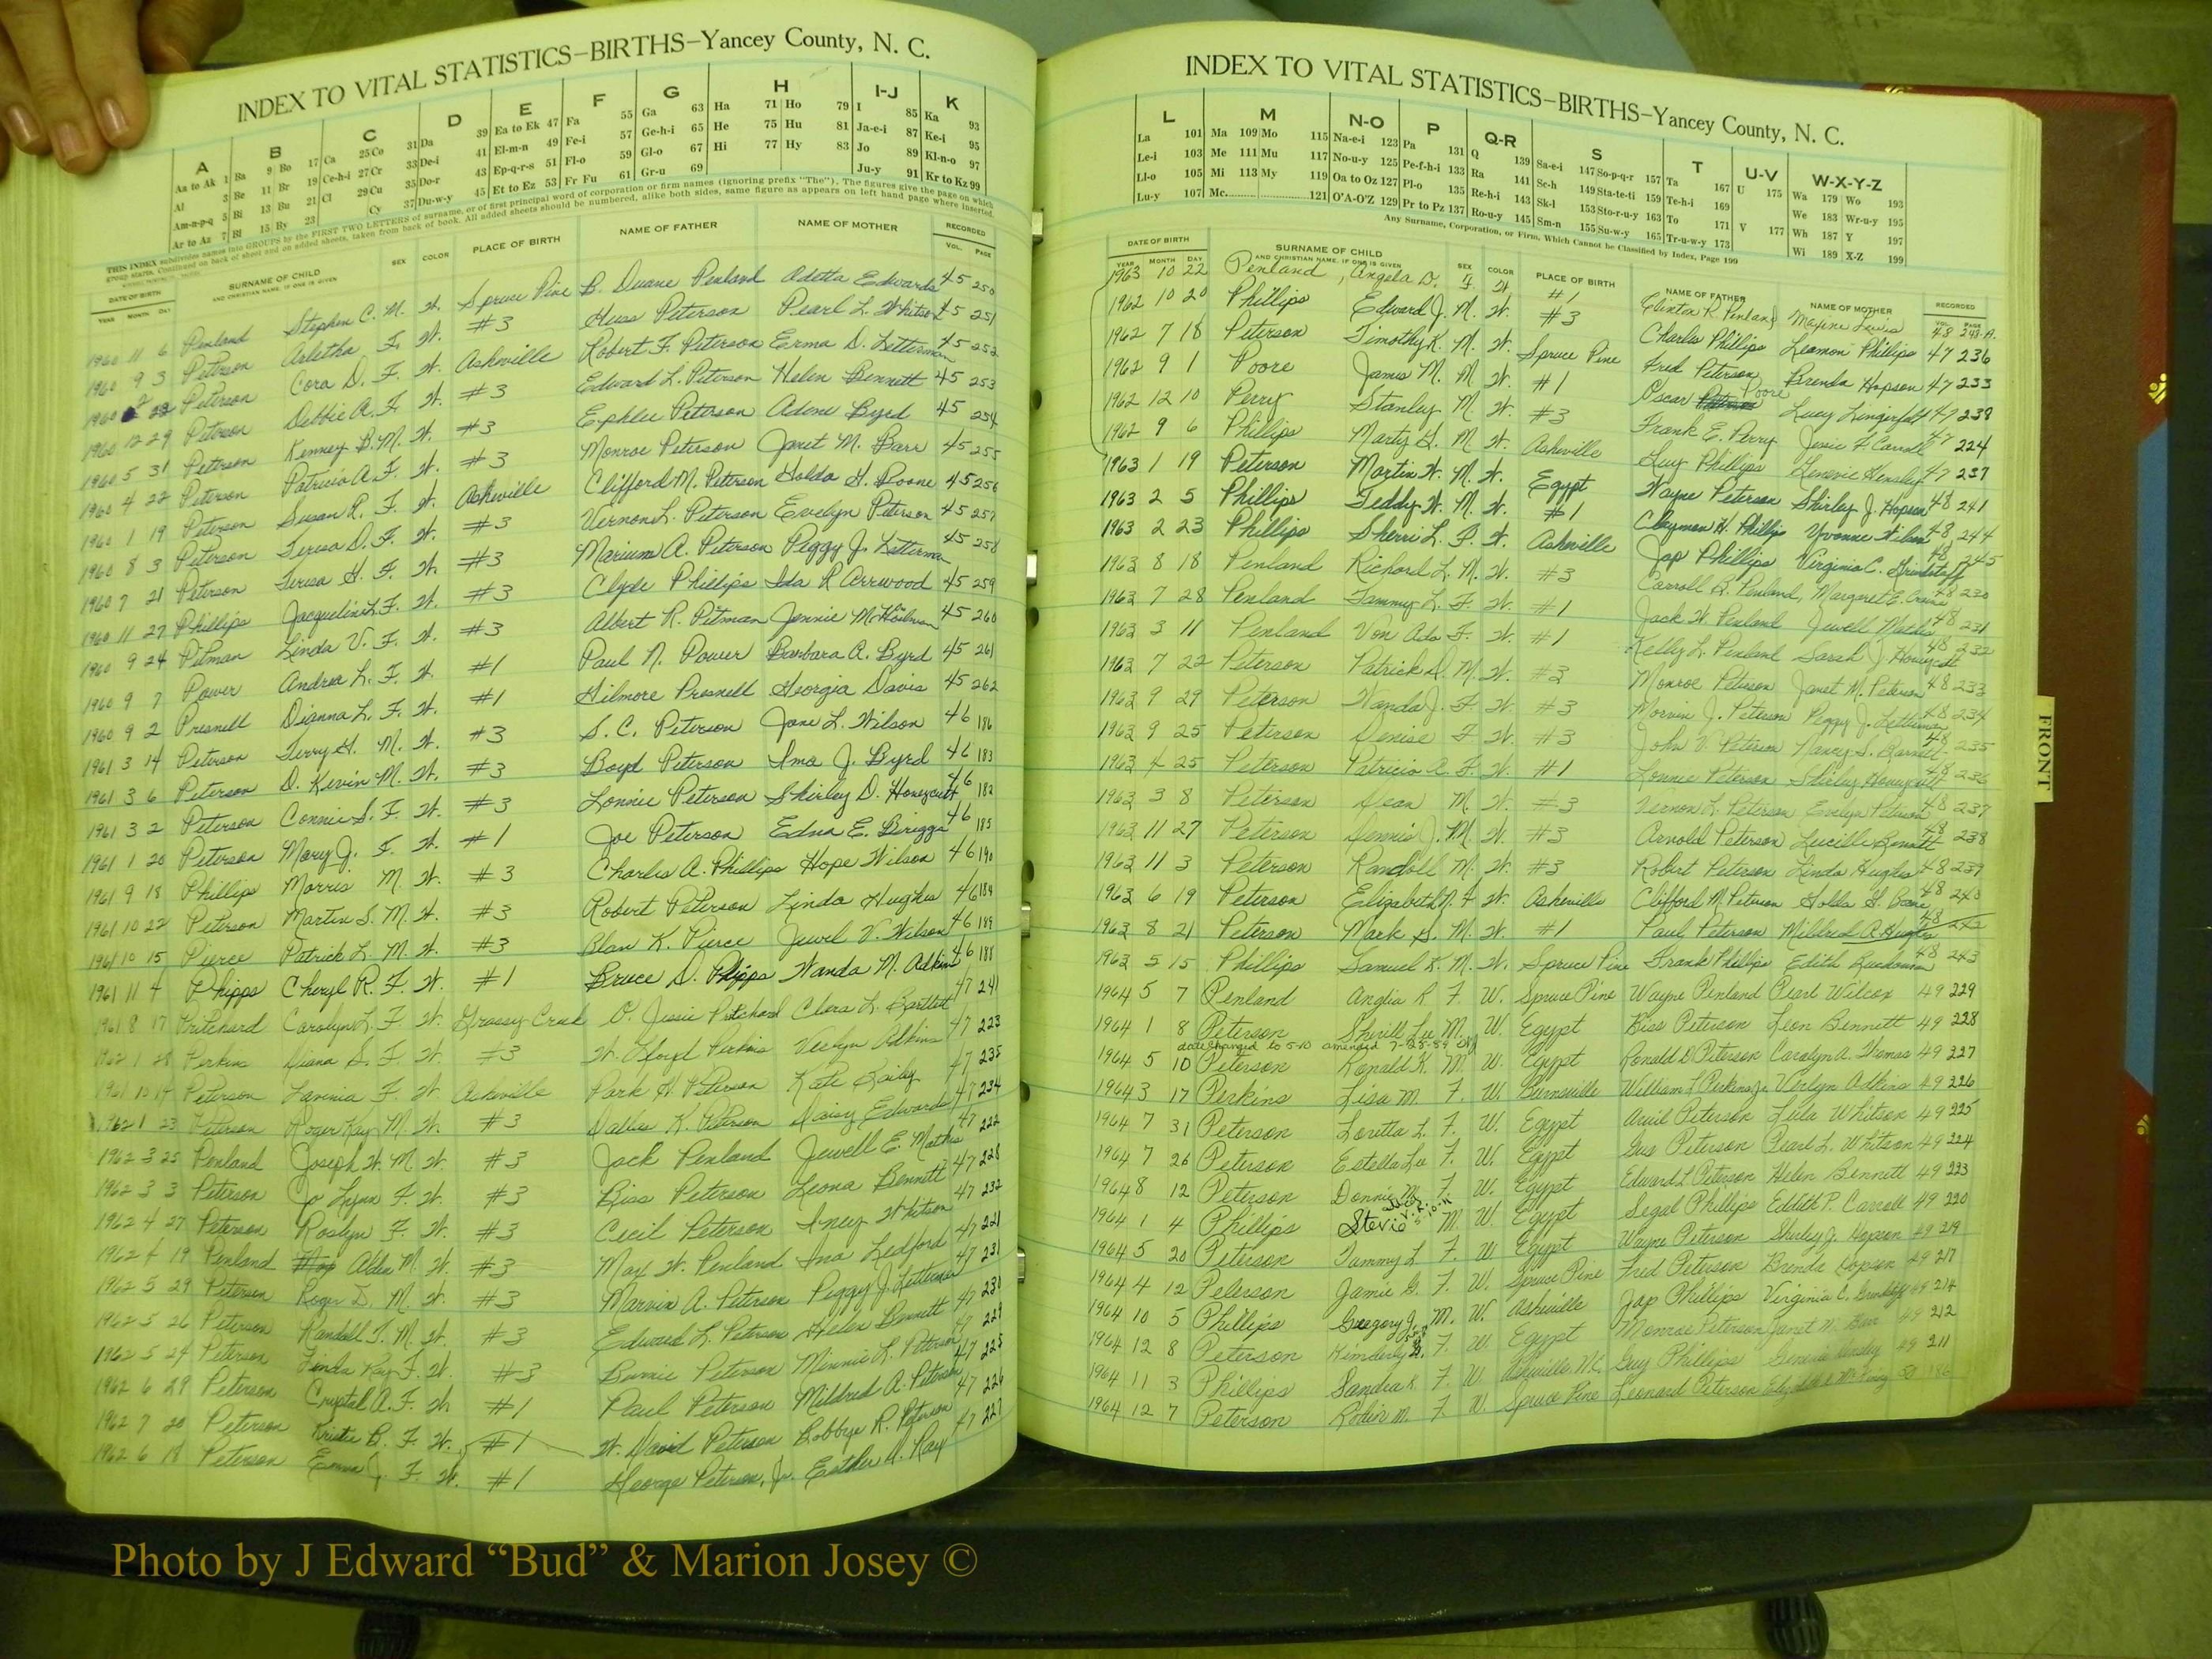 INDEX TO VITAL STATISTICS–BIRTHS–Yancey County, N. C.
A B C D E F G H I-J K
Aa to Ak 1 Ba 9 Bo 17 Ca 25 Co 31 Da 39 Ea to Ek 47 Fa 55 Ga 63 Ha 71 Ho 79 I 85 Ka 93
Al 3 Be 11 Br 19 Ce-h-i 27 Cr 33 De-i 41 El-m-n 49 Fe-i 57 Ge-h-i 65 He 75 Hu 81 Ja-e-i 87 Ke-i 95
Am-n-p-q 5 Bi 13 Bu 21 Cl 29 Cu 35 Do-r 43 Ep-q-r-s 51 Fl-o 59 Gl-o 67 Hi 77 Hy 83 Jo 89 Kl-n-o 97
Ar to Az 7 Bl 15 By 23 Cy 37 Du-w-y 45 Et to Ez 53 Fr Fu 61 Gr-u 69 Ju-y 91 Kr to Kz 99
THIS INDEX subdivides names into GROUPS by the FIRST TWO LETTERS of surname, or of first principal word of corporation or firm names (ignoring prefix "The"). The figures give the page on which
group starts. Continued on back of sheet and on added sheets, taken from back of book. All added sheets should be numbered, alike both sides, same figure as appears on left hand page where inserted.
DATE OF BIRTH SURNAME OF CHILD SEX COLOR PLACE OF BIRTH NAME OF FATHER NAME OF MOTHER RECORDED
YEAR MONTH DAY AND CHRISTIAN NAME, IF ONE IS GIVEN VOL. PAGE
1960 11 6 Penland Stephen C. M. W. Spruce Pine B. Duane Penland Adetta Edwards 45 250
1960 9 3 Peterson Arletha F. W. #3 Huss Peterson Pearl L. Whitson 45 251
1960 22 Peterson Cora D. F. W. Asheville Robert F. Peterson Erma D. Letterman 45 252
1960 12 29 Peterson Debbie A. F. W. #3 Edward L. Peterson Helen Bennett 45 253
1960 5 31 Peterson Kenney B. M. W. #3 Ephlee Peterson Adene Byrd 45 254
1960 4 22 Peterson Patricia A. F. W. #3 Monroe Peterson Janet M. Barr 45 255
1960 1 19 Peterson Susan R. F. W. Asheville Clifford M. Peterson Holda H. Boone 45 256
1960 8 3 Peterson Teresa D. F. W. #3 Vernon L. Peterson Evelyn Peterson 45 257
1960 7 21 Peterson Teresa H. F. W. #3 A. Peterson Peggy J. Letterman 45 258
1960 11 27 Phillips Jacqueline L. F. W. #3 Clyde Phillips Ida R Arrwood 45 259
1960 9 24 Pitman Linda V. F. W. #3 Albert R. Pitman Jennie 45 260
1960 9 7 Power Andrea L. F. W. #1 Paul N. Power Barbara A. Byrd 45 261
1960 9 2 Presnell Dianna L. F. W. #1 Gilmore Presnell Georgia Davis 45 262
1961 3 14 Peterson Terry H. M. W. #3 S. C. Peterson Jane L. Wilson 46 186
1961 3 6 Peterson D. Kevin M. W. #3 Boyd Peterson Ima J. Byrd 46 183
1961 3 2 Peterson Connie S. F. W. #3 Lonnie Peterson Shirley D. Honeycutt 46 182
1961 1 20 Peterson Mary J. F. W. #1 Joe Peterson Edna E. Briggs 46 185
1961 9 18 Phillips Morris M. W. #3 Charles A. Phillips Hope Wilson 46 190
1961 10 22 Peterson Martin S. M. W. #3 Robert Peterson Linda Hughes 46 184
1961 10 15 Pierce Patrick L. M. W. #3 Alan K. Pierce Jewel V. Wilson 46 189
1961 11 4 Phipps Cheryl R. F. W. #1 Bruce D. Phipps Wanda M. Adkins 46 188
1961 8 17 Pritchard Carolyn L. F. W. Grassy Creek O. Jessie Pritchard Clora L. Bartlett 47 241
1962 1 28 Perkins Diana S. F. W. #3 W. Floyd Perkins Verlyn Adkins 47 223
1961 10 14 Peterson Lavinia F. W. Asheville Park H. Peterson Kate Bailey 47 235
1962 1 23 Peterson Roger Kay M. W. #3 Dallas K. Peterson Daisy Edwards 47 234
1962 3 25 Penland Joseph W. M. W. #3 Jack Penland Jewell E. Mathis 47 222
1962 3 3 Peterson Jo Lynn F. W. #3 Biss Peterson Leona Bennett 47 228
1962 4 27 Peterson Roslyn F. W. #3 Cecil Peterson Whitson 47 232
1962 4 19 Penland Alden M. W. #3 Max W. Penland Ina Ledford 47 221
1962 5 29 Peterson Roger D. M. W. #3 Marvin A. Peterson Peggy J. Letterman 47 231
1962 5 26 Peterson Randall J. M. W. #3 Edward L. Peterson Helen Bennett 47 230
1962 5 24 Peterson Linda Kay F. W. #3 Peterson Minnie L. Peterson 47 229
1962 6 29 Peterson Crystal A. F. W. #1 Paul Peterson Mildred A. Peterson 47 225
1962 7 20 Peterson Kristie B. F. W. #1 W. David Peterson Bobbye R. Peterson 47 226
1962 6 18 Peterson J. F. W. #1 George Peterson, Jr. Esther H. Ray 47 227
INDEX TO VITAL STATISTICS–BIRTHS–Yancey County, N. C.
L M N-O P Q-R S T U-V W-X-Y-Z
La 101 Ma 109 Mo 115 Na-e-i 123 Pa 131 Q 139 Sa-e-i 147 So-p-q-r 157 Ta 167 U 175 Wa 179 Wo 193
Le-i 103 Me 111 Mu 117 No-u-y 125 Pe-f-h-i 133 Ra 141 Sc-h 149 Sta-te-ti 159 Te-h-i 169 We 183 Wr-u-y 195
Ll-o 105 Mi 113 My 119 Oa to Oz 127 Pl-o 135 Re-h-i 143 Sk-l 153 Sto-r-u-y 163 To 171 V 177 Wh 187 Y 197
Lu-y 107 Mc 121 O'A-O'Z 129 Pr to Pz 137 Ro-u-y 145 Sm-n 155 Su-w-y 165 Tr-u-w-y 173 Wi 189 X-Z 199
Any Surname, Corporation, or Firm, Which Cannot be Classified by Index, Page 199
DATE OF BIRTH SURNAME OF CHILD SEX COLOR PLACE OF BIRTH NAME OF FATHER NAME OF MOTHER RECORDED
YEAR MONTH DAY AND CHRISTIAN NAME, IF ONE IS GIVEN VOL. PAGE
1963 10 22 Penland, Angela D. F. W. #1 Clinton R Penland Maxine Lewis 48 248 A.
1962 10 20 Phillips Edward J. M. W. #3 Charles Phillips Leamon Phillips 47 236
1962 7 18 Peterson Timothy K. M. W. Spruce Pine Fred Peterson Brenda Hopson 47 233
1962 9 1 Poore James M. M W. #1 Oscar Poore Lucy Lingerfelt 47 239
1962 12 10 Perry Stanley M. W. #3 Frank E. Perry Jessie F. Carroll 47 224
1962 9 6 Phillips Marty G. M. W. Asheville Guy Phillips Hensley 47 237
1963 1 19 Peterson Martin W. M. W. Egypt Wayne Peterson Shirley J. Hopson 48 241
1963 2 5 Phillips Teddy W. M. W. #1 Clayman H. Phillips Yvonne Wilson 48 244
1963 2 23 Phillips Sherri L. F. W. Asheville Jap Phillips Virginia C. Grindstaff 48 245
1963 8 18 Penland Richard L. M. W. #3 Carroll B. Penland, Margaret E. 48 230
1963 7 28 Penland Tammy L. F. W. #1 Jack W. Penland Jewell Mathis 48 231
1963 3 11 Penland Von Ada F. W. #1 Kelly L. Penland Sarah J. Honeycutt 48 232
1963 7 22 Peterson Patrick D. M. W. #3 Monroe Peterson Janet M. Peterson 48 233
1963 9 29 Peterson Wanda J. F. W #3 Marvin J. Peterson Peggy J. Letterman 48 234
1963 9 25 Peterson Denise F W. #3 John V. Peterson Nancy S. Barnett 48 235
1963 4 25 Peterson Patricia A. F. W. #1 Lonnie Peterson Shirley Honeycutt 48 236
1963 3 8 Peterson Dean M. W. #3 Vernon L. Peterson Evelyn Peterson 48 237
1963 11 27 Peterson Dennis J. M. W. #3 Arnold Peterson Lucille Bennett 48 238
1963 11 3 Peterson Randall M. W. #3 Robert Peterson Linda Hughes 48 239
1963 6 19 Peterson Elizabeth F W. Asheville Clifford M. Peterson Holda H. Boone 48 240
1963 8 21 Peterson Mark S. M. W. #1 Paul Peterson Mildred A. 48 242
1963 5 15 Phillips Samuel K. M. W. Spruce Pine Frank Phillips Edith Buchanan 48 243
1964 5 7 Penland Anglia R F. W. Spruce Pine Wayne Penland Pearl Wilcox 49 229
1964 1 8 Peterson Sherill Lee M. W. Egypt Biss Peterson Leon Bennett 49 228
date changed to 5-10 amended 7-25-89
1964 5 10 Peterson Ronald K. M W. Egypt Ronald D Peterson Carolyn A. Thomas 49 227
1964 3 17 Perkins Lisa M. F. W. Burnsville William F Perkins Jr. Verlyn Adkins 49 226
1964 7 31 Peterson Loretta L. F. W. Egypt Avril Peterson Lula Whitson 49 225
1964 7 26 Peterson Estella Lee F. W. Egypt Gus Peterson Pearl L. Whitson 49 224
1964 8 12 Peterson Donnie M. F. W. Egypt Edward L Peterson Helen Bennett 49 223
1964 1 4 Phillips Stevie M. W. Egypt Segal Phillips Edith P. Carroll 49 220
1964 5 20 Peterson Tammy L F. W. Egypt Wayne Peterson Shirley J. Hopson 49 219
1964 4 12 Peterson Jamie G. F. W. Spruce Pine Fred Peterson Brenda Hopson 49 217
1964 10 5 Phillips Gregory J. M. W. Asheville Jap Phillips Virginia C. Grindstaff 49 214
1964 12 8 Peterson Kimberly F. W. Egypt Monroe Peterson Janet M. Barr 49 212
1964 11 3 Phillips Sandra K. F. W. Asheville N.C. Guy Phillips Hensley 49 211
1964 12 7 Peterson Robin M. F. W. Spruce Pine Leonard Peterson 50 186
FRONT
Photo by J Edward “Bud” & Marion Josey ©